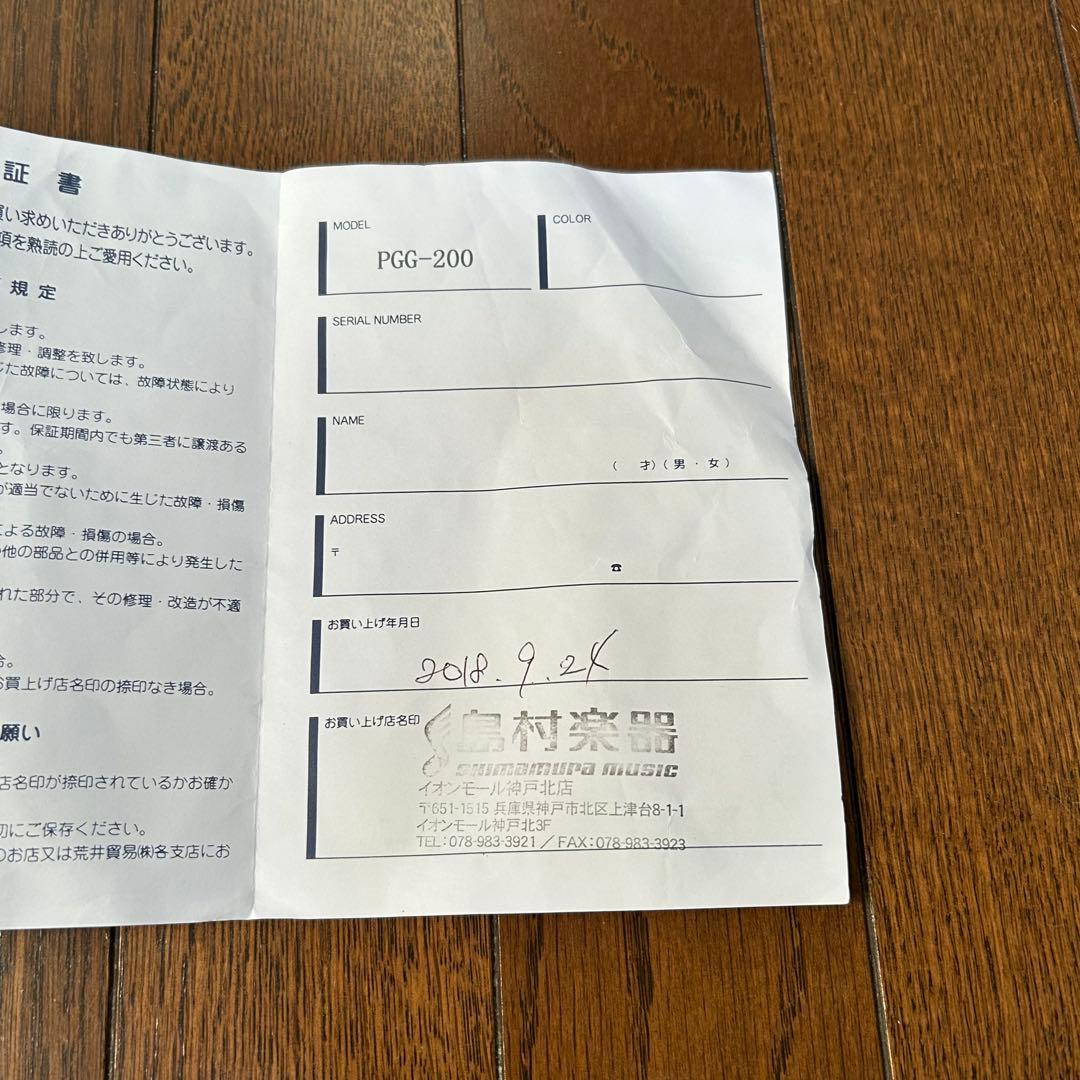 証 書
買い求めいただきありがとうございます。
項を熟読の上ご愛用ください。
規 定
します。
修理・調整を致します。
じた故障については、故障状態により
場合に限ります。
す。保証期間内でも第三者に譲渡ある
。
となります。
が適当でないために生じた故障・損傷
による故障・損傷の場合。
他の部品との併用等により発生した
れた部分で、その修理・改造が不適
合。
お買上げ店名印の捺印なき場合。
願い
店名印が捺印されているかお確か
切にご保存ください。
のお店又は荒井貿易㈱各支店にお
MODEL
PGG-200
COLOR
SERIAL NUMBER
NAME
( 才)(男・女)
ADDRESS
〒
☎
お買い上げ年月日
2018.9.24
お買い上げ店名印
島村楽器
Shimamura music
イオンモール神戸北店
〒651-1515 兵庫県神戸市北区上津台8-1-1
イオンモール神戸北3F
TEL:078-983-3921/FAX:078-983-3923